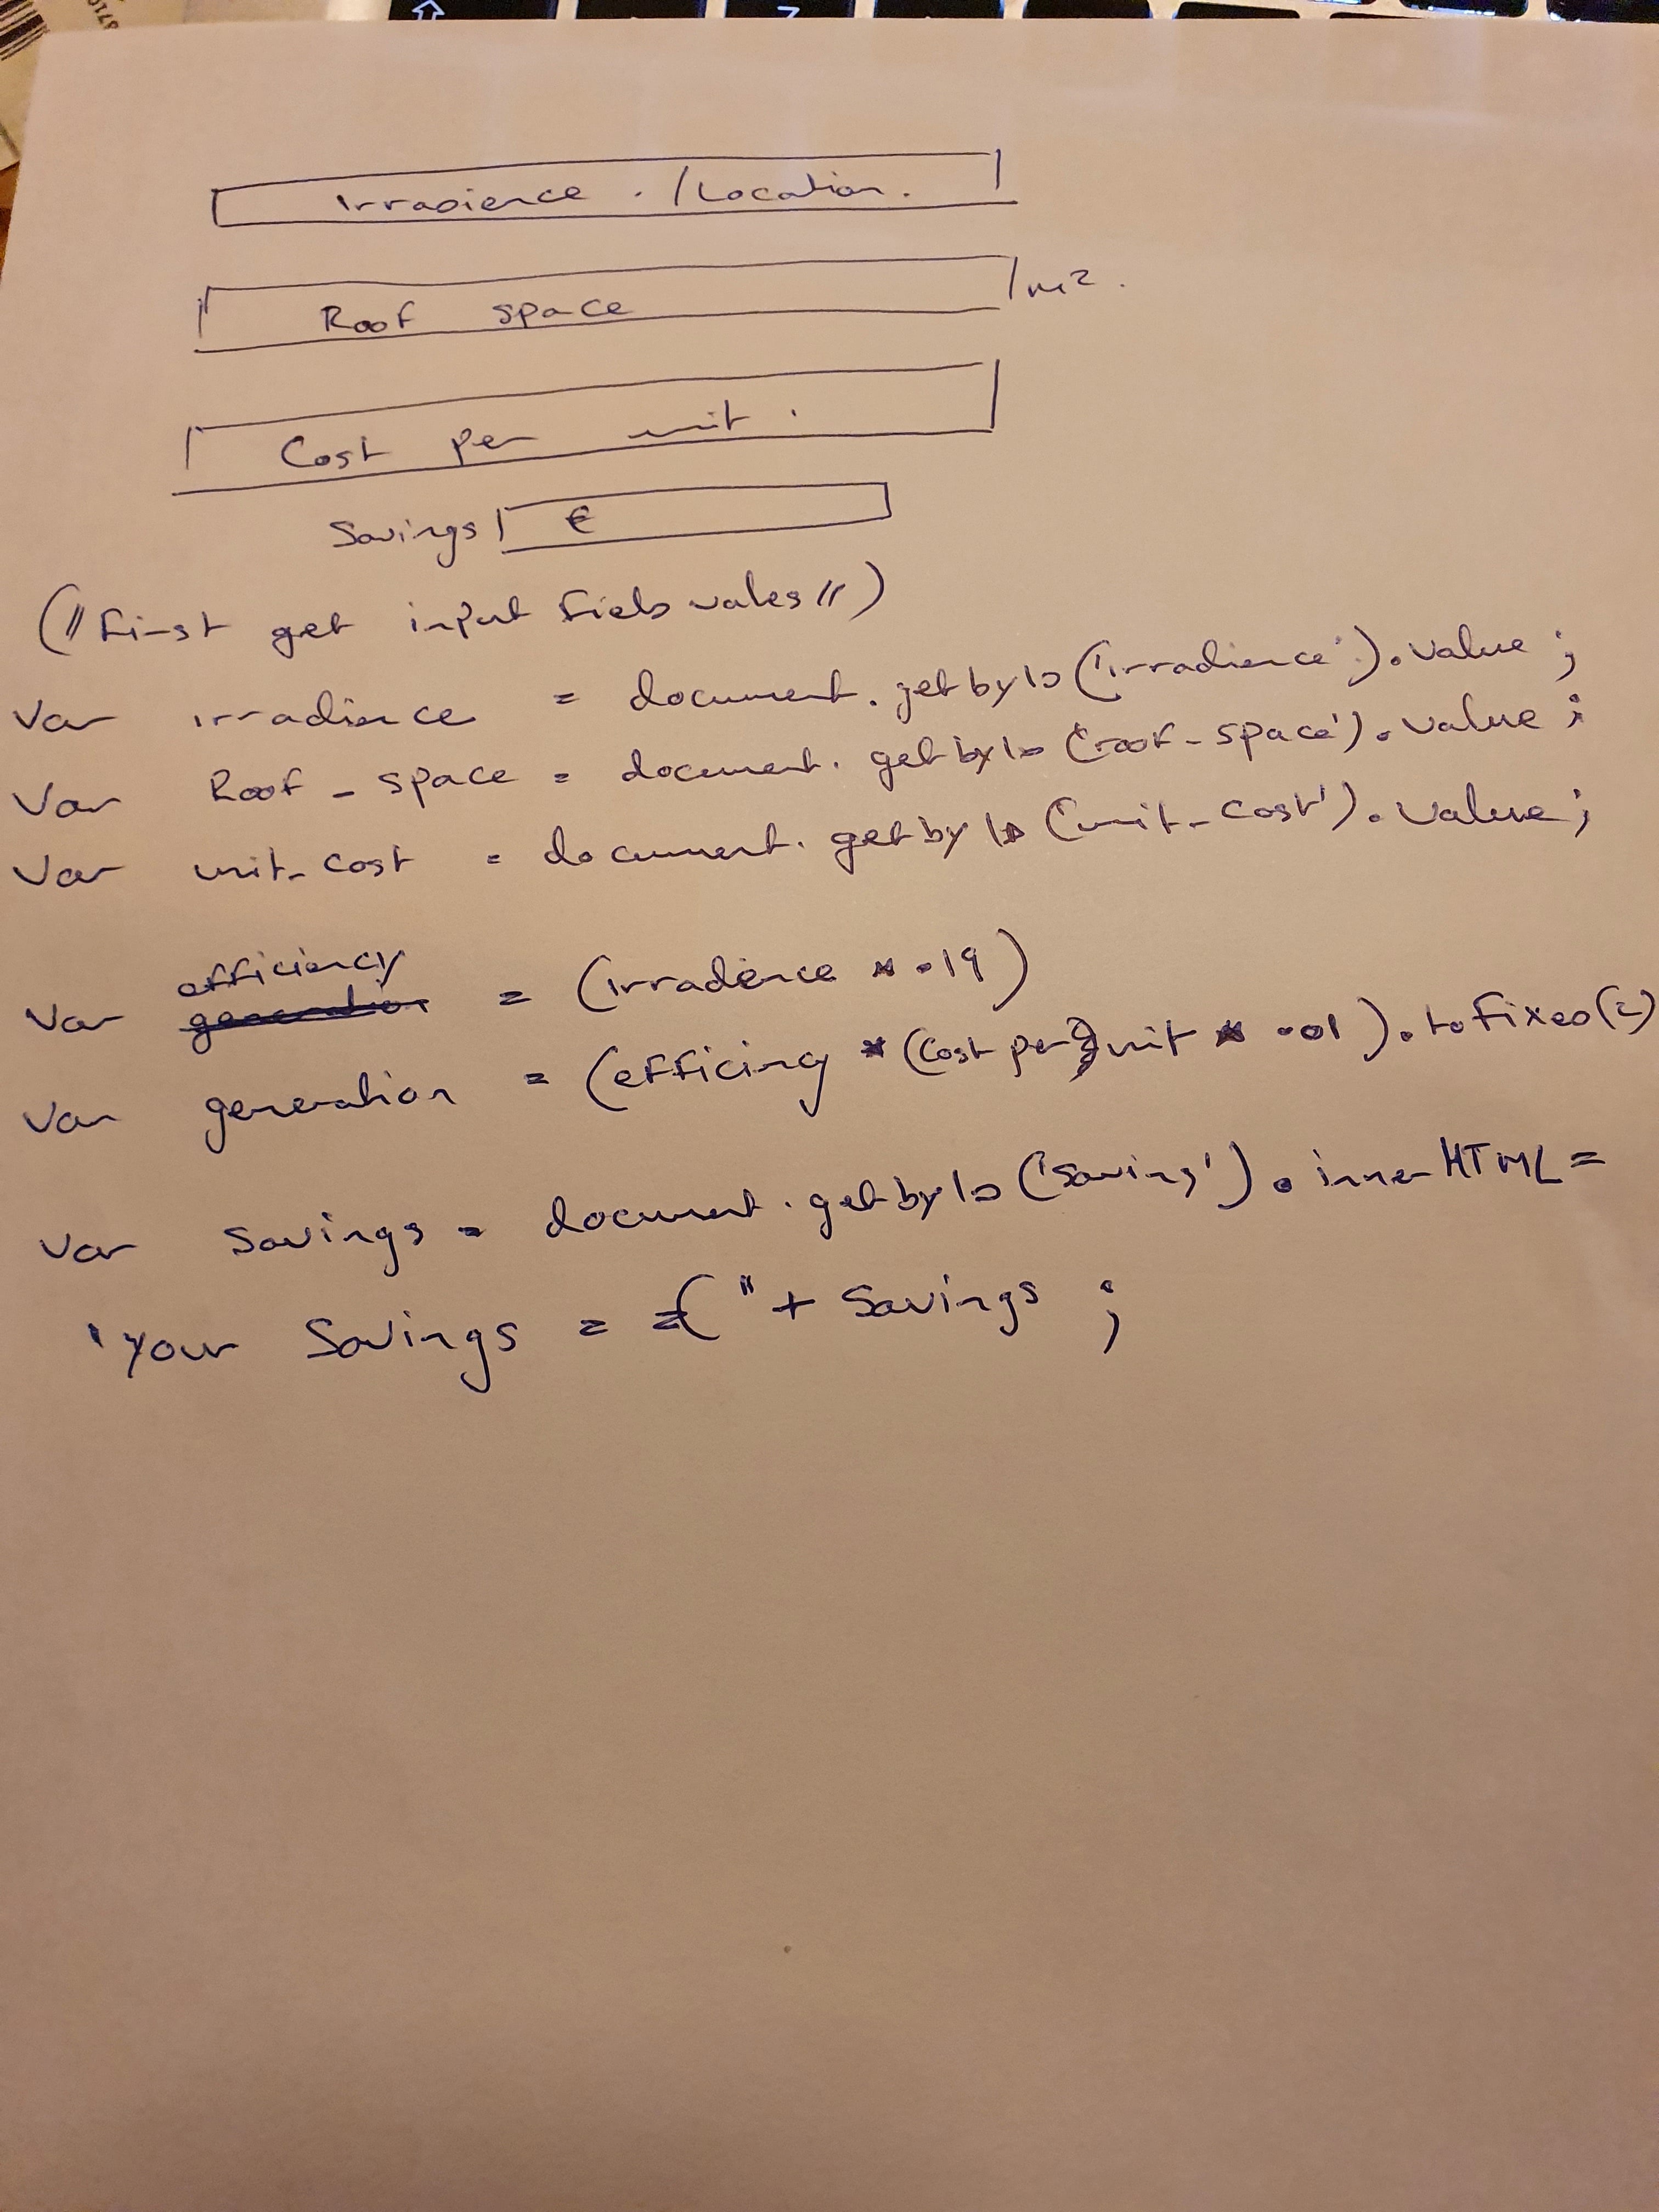 Irradience . / Location.
Roof space m2.
Cost per unit.
Savings €
(// First get input field vales //)
Var irradience = document.getbyID('irradience').Value ;
Var Roof_space = document.getbyID('roof-space').Value ;
Var unit-cost = document.getbyID('unit-cost').Value ;
efficiency
Var generation = (irradence * .19)
Var generation = (efficincy * (cost per unit * .01).tofixed(2)
Var Savings = document.getbyID('saving').innerHTML =
'Your Savings = € " + Savings ;